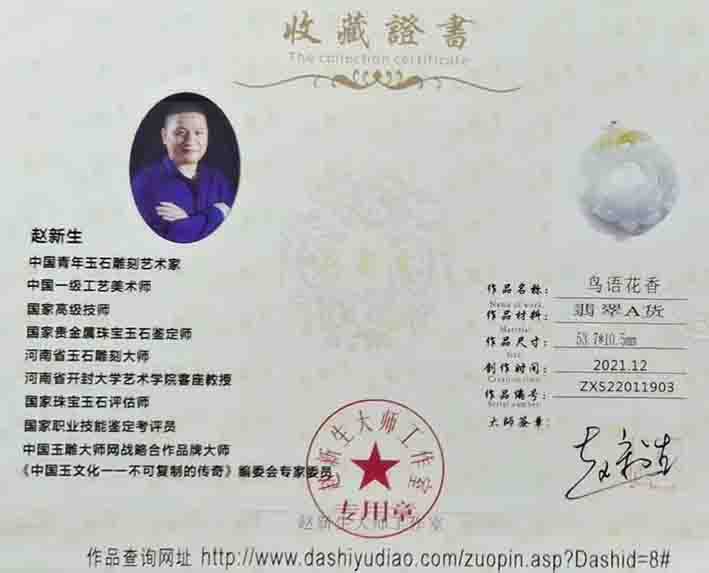 收藏證書
The collection certificate
赵新生
中国青年玉石雕刻艺术家
中国一级工艺美术师
国家高级技师
国家贵金属珠宝玉石鉴定师
河南省玉石雕刻大师
河南省开封大学艺术学院客座教授
国家珠宝玉石评估师
国家职业技能鉴定考评员
中国玉雕大师网战略合作品牌大师
《中国玉文化一一不可复制的传奇》编委会专家委员
作品名称: 鸟语花香
Name of work:
作品材料: 翡翠A货
Material:
作品尺寸: 53.7*10.5mm
Size:
创作时间: 2021.12
Creation time:
作品编号: ZXS22011903
Serial number:
大师签章:
赵新生
赵新生大师工作室
专用章
赵新生大师工作室
作品查询网址 http://www.dashiyudiao.com/zuopin.asp?Dashid=8#